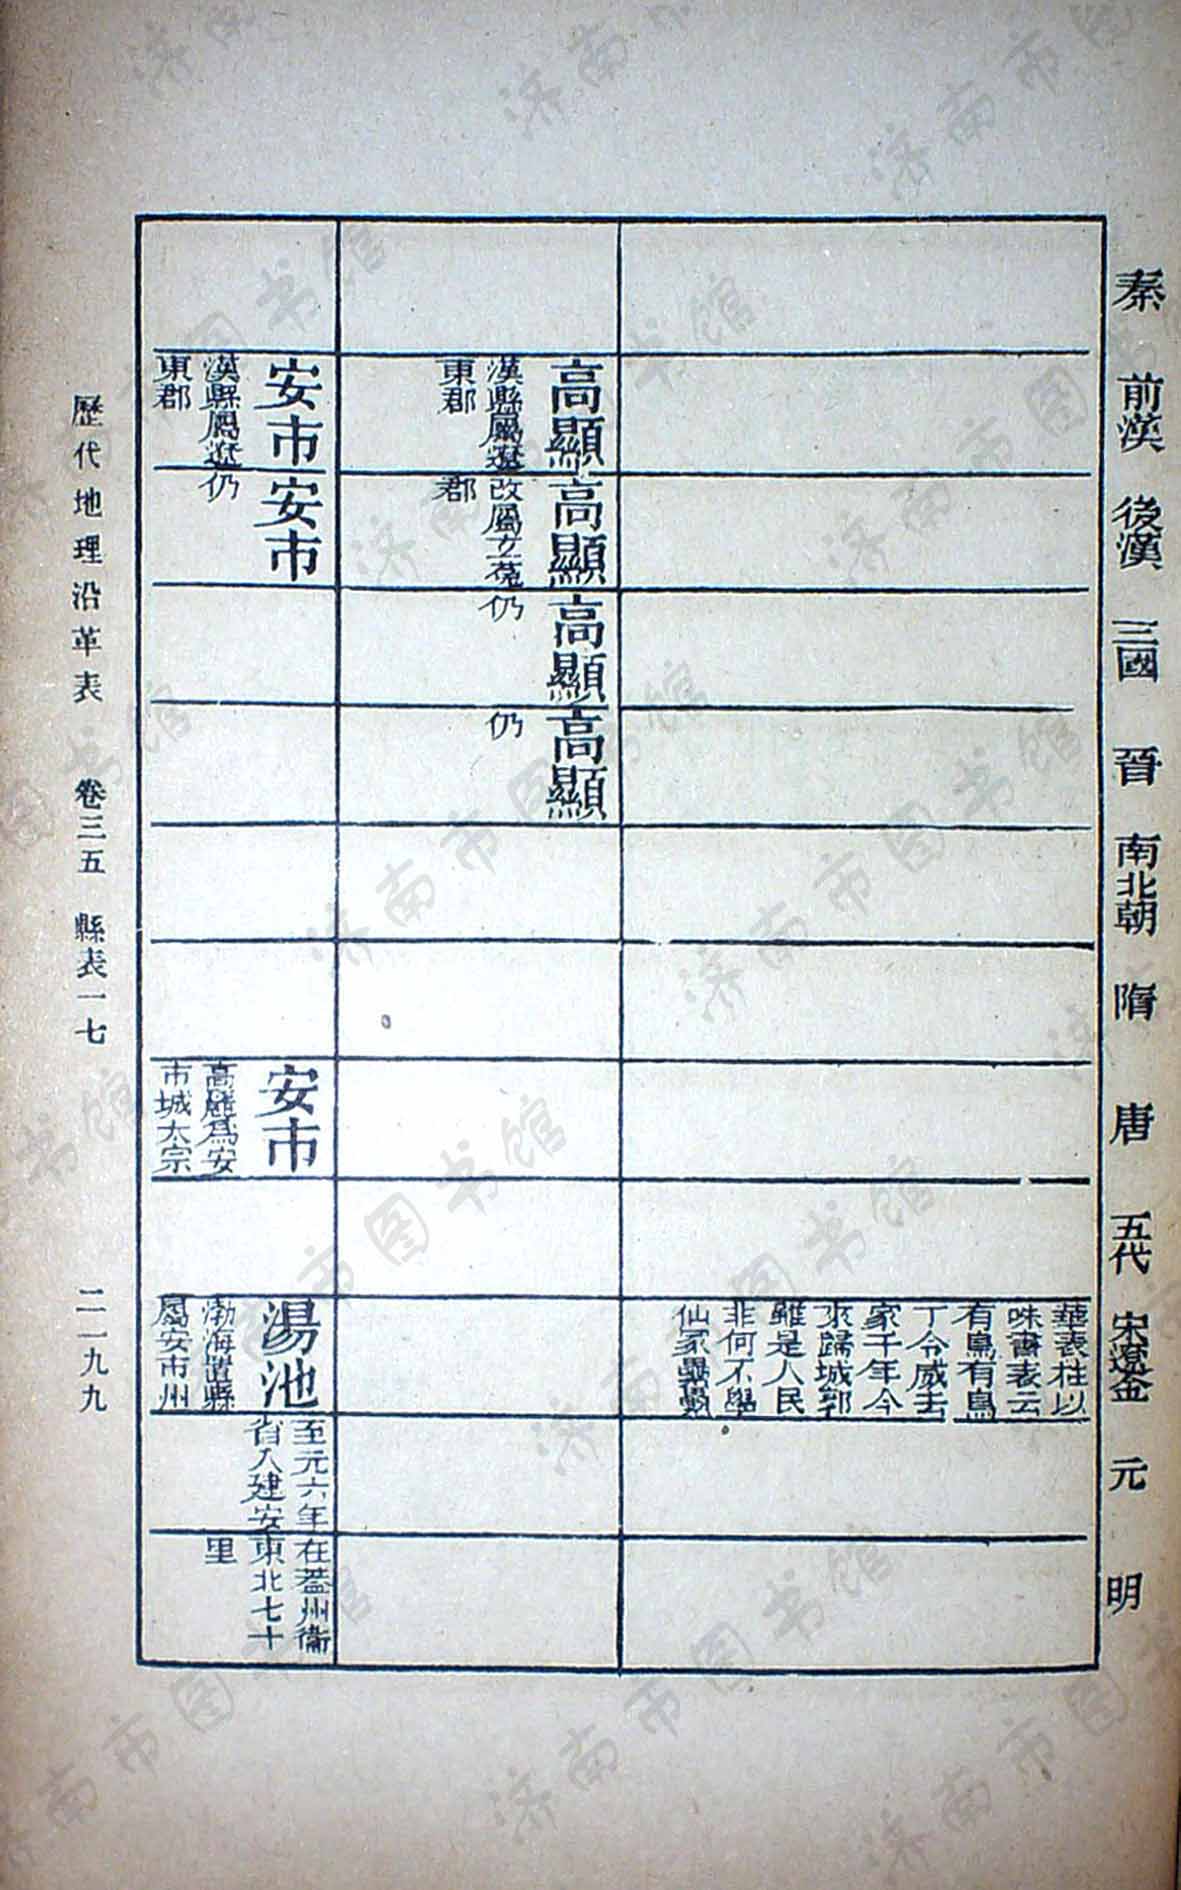 秦 前漢 後漢 三國 晉 南北朝 隋 唐 五代 宋遼金 元 明
華表柱以
咮書表云
有鳥有鳥
丁令威去
家千年今
來歸城郭
雖是人民
非何不學
仙冢纍纍
高顯
漢縣屬遼
東郡
高顯
改屬玄菟
郡
高顯
仍
高顯
仍
安市
漢縣屬遼
東郡
安市
仍
安市
高麗爲安
市城太宗
湯池
渤海置縣
屬安市州
至元六年
省入建安
在蓋州衞
東北七十
里
歷代地理沿革表 卷三五 縣表一七 二一九九